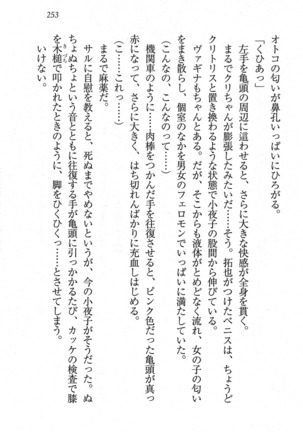 253
オトコの匂いが鼻孔いっぱいにひろがる。
「くひあっ」
左手を亀頭の周辺に這わせると、さらに大きな快感が全身を貫く。
まるでクリちゃんが膨張したみたいだ……そう。拓也がつけたペニスは、ちょうど
クリトリスと置き換わるような状態で小夜子の股間から伸びている。
ヴァギナもちゃんとある。だが、そこからも液体がとめどなく流れ、女の子の匂い
をまき散らし、個室のなかを男女のフェロモンでいっぱいに満たしていた。
(こんなの、こんなのって……)
機関車のように……肉棒をつかんだ手を往復させると、ピンク色だった亀頭が真っ
赤になって、さらに大きく、はち切れんばかりに充血しはじめる。
(こ……これっ……)
まるで麻薬だ。
サルに自慰を教えると、死ぬまでやめないというが、今の小夜子がそうだった。ぬ
ちょぬちょという音とともに往復する手が亀頭に引っかかるたび、カッケの検査で膝
を木槌で叩かれたときのように、脚をひくひくっ……とさせてしまう。
いけない。